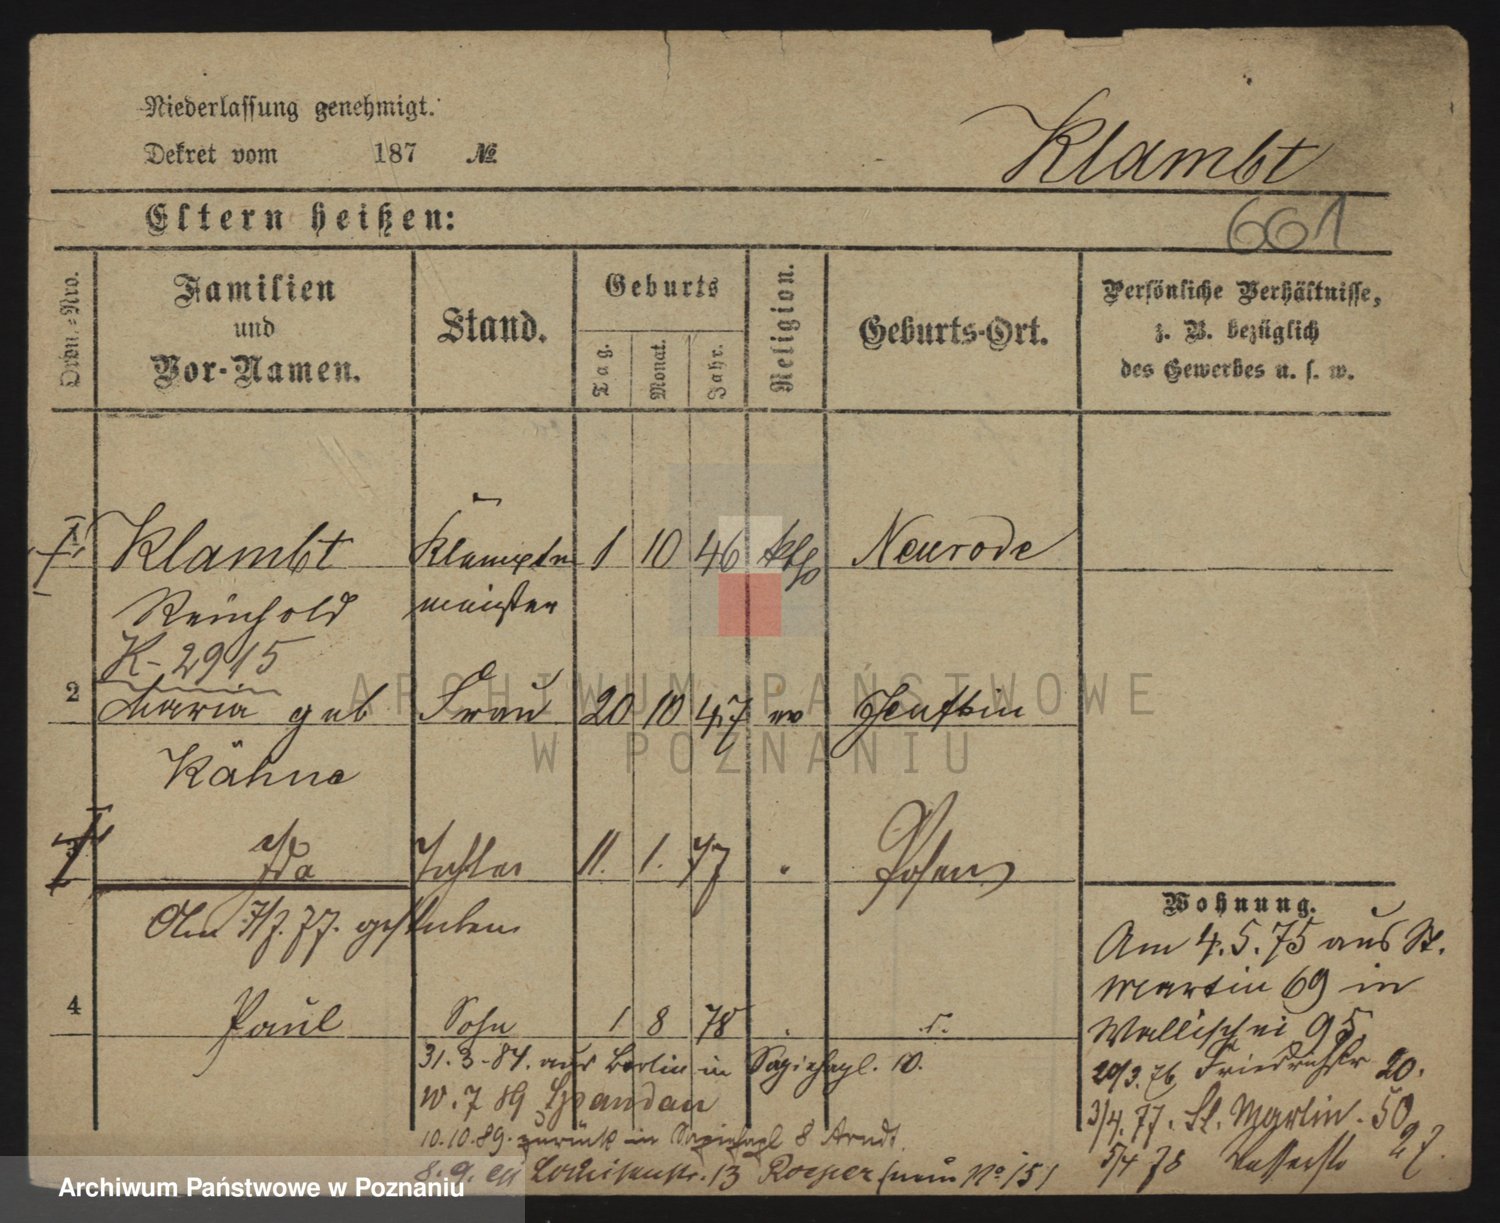 Niederlassung genehmigt.
Dekret vom 187 №
Klambt
Eltern heißen:
661
Ordn.=Nro.
Familien und Vor-Namen.
Stand.
Geburts
Tag.
Monat.
Jahr.
Religion.
Geburts-Ort.
Persönliche Verhältnisse, z. B. bezüglich des Gewerbes u. s. w.
1 Klambt Klempner 1 10 46 kth Neurode
Reinhold meister
K-2915
2 Maria geb Frau 20 10 47 ev
Kähne
3 Ida Tochter 11. 1. 77 " Posen
Am 7/7. 77. gestorben
4 Paul Sohn 1 8 78
Wohnung.
Am 4. 5. 75 aus St.
Martin 69 in
Wallischei 95.
20/3. 76 Friedrichstr 20.
3/4. 77. St. Martin. 50
5/4 78 27.
31. 3. 84. aus Berlin in Sapiehapl. 10.
7 89 Spandau
10. 10. 89. zurück in Sapiehapl 8 Arndt.
13 Roeper (neue No 15)
ARCHIWUM PAŃSTWOWE
W POZNANIU
Archiwum Państwowe w Poznaniu